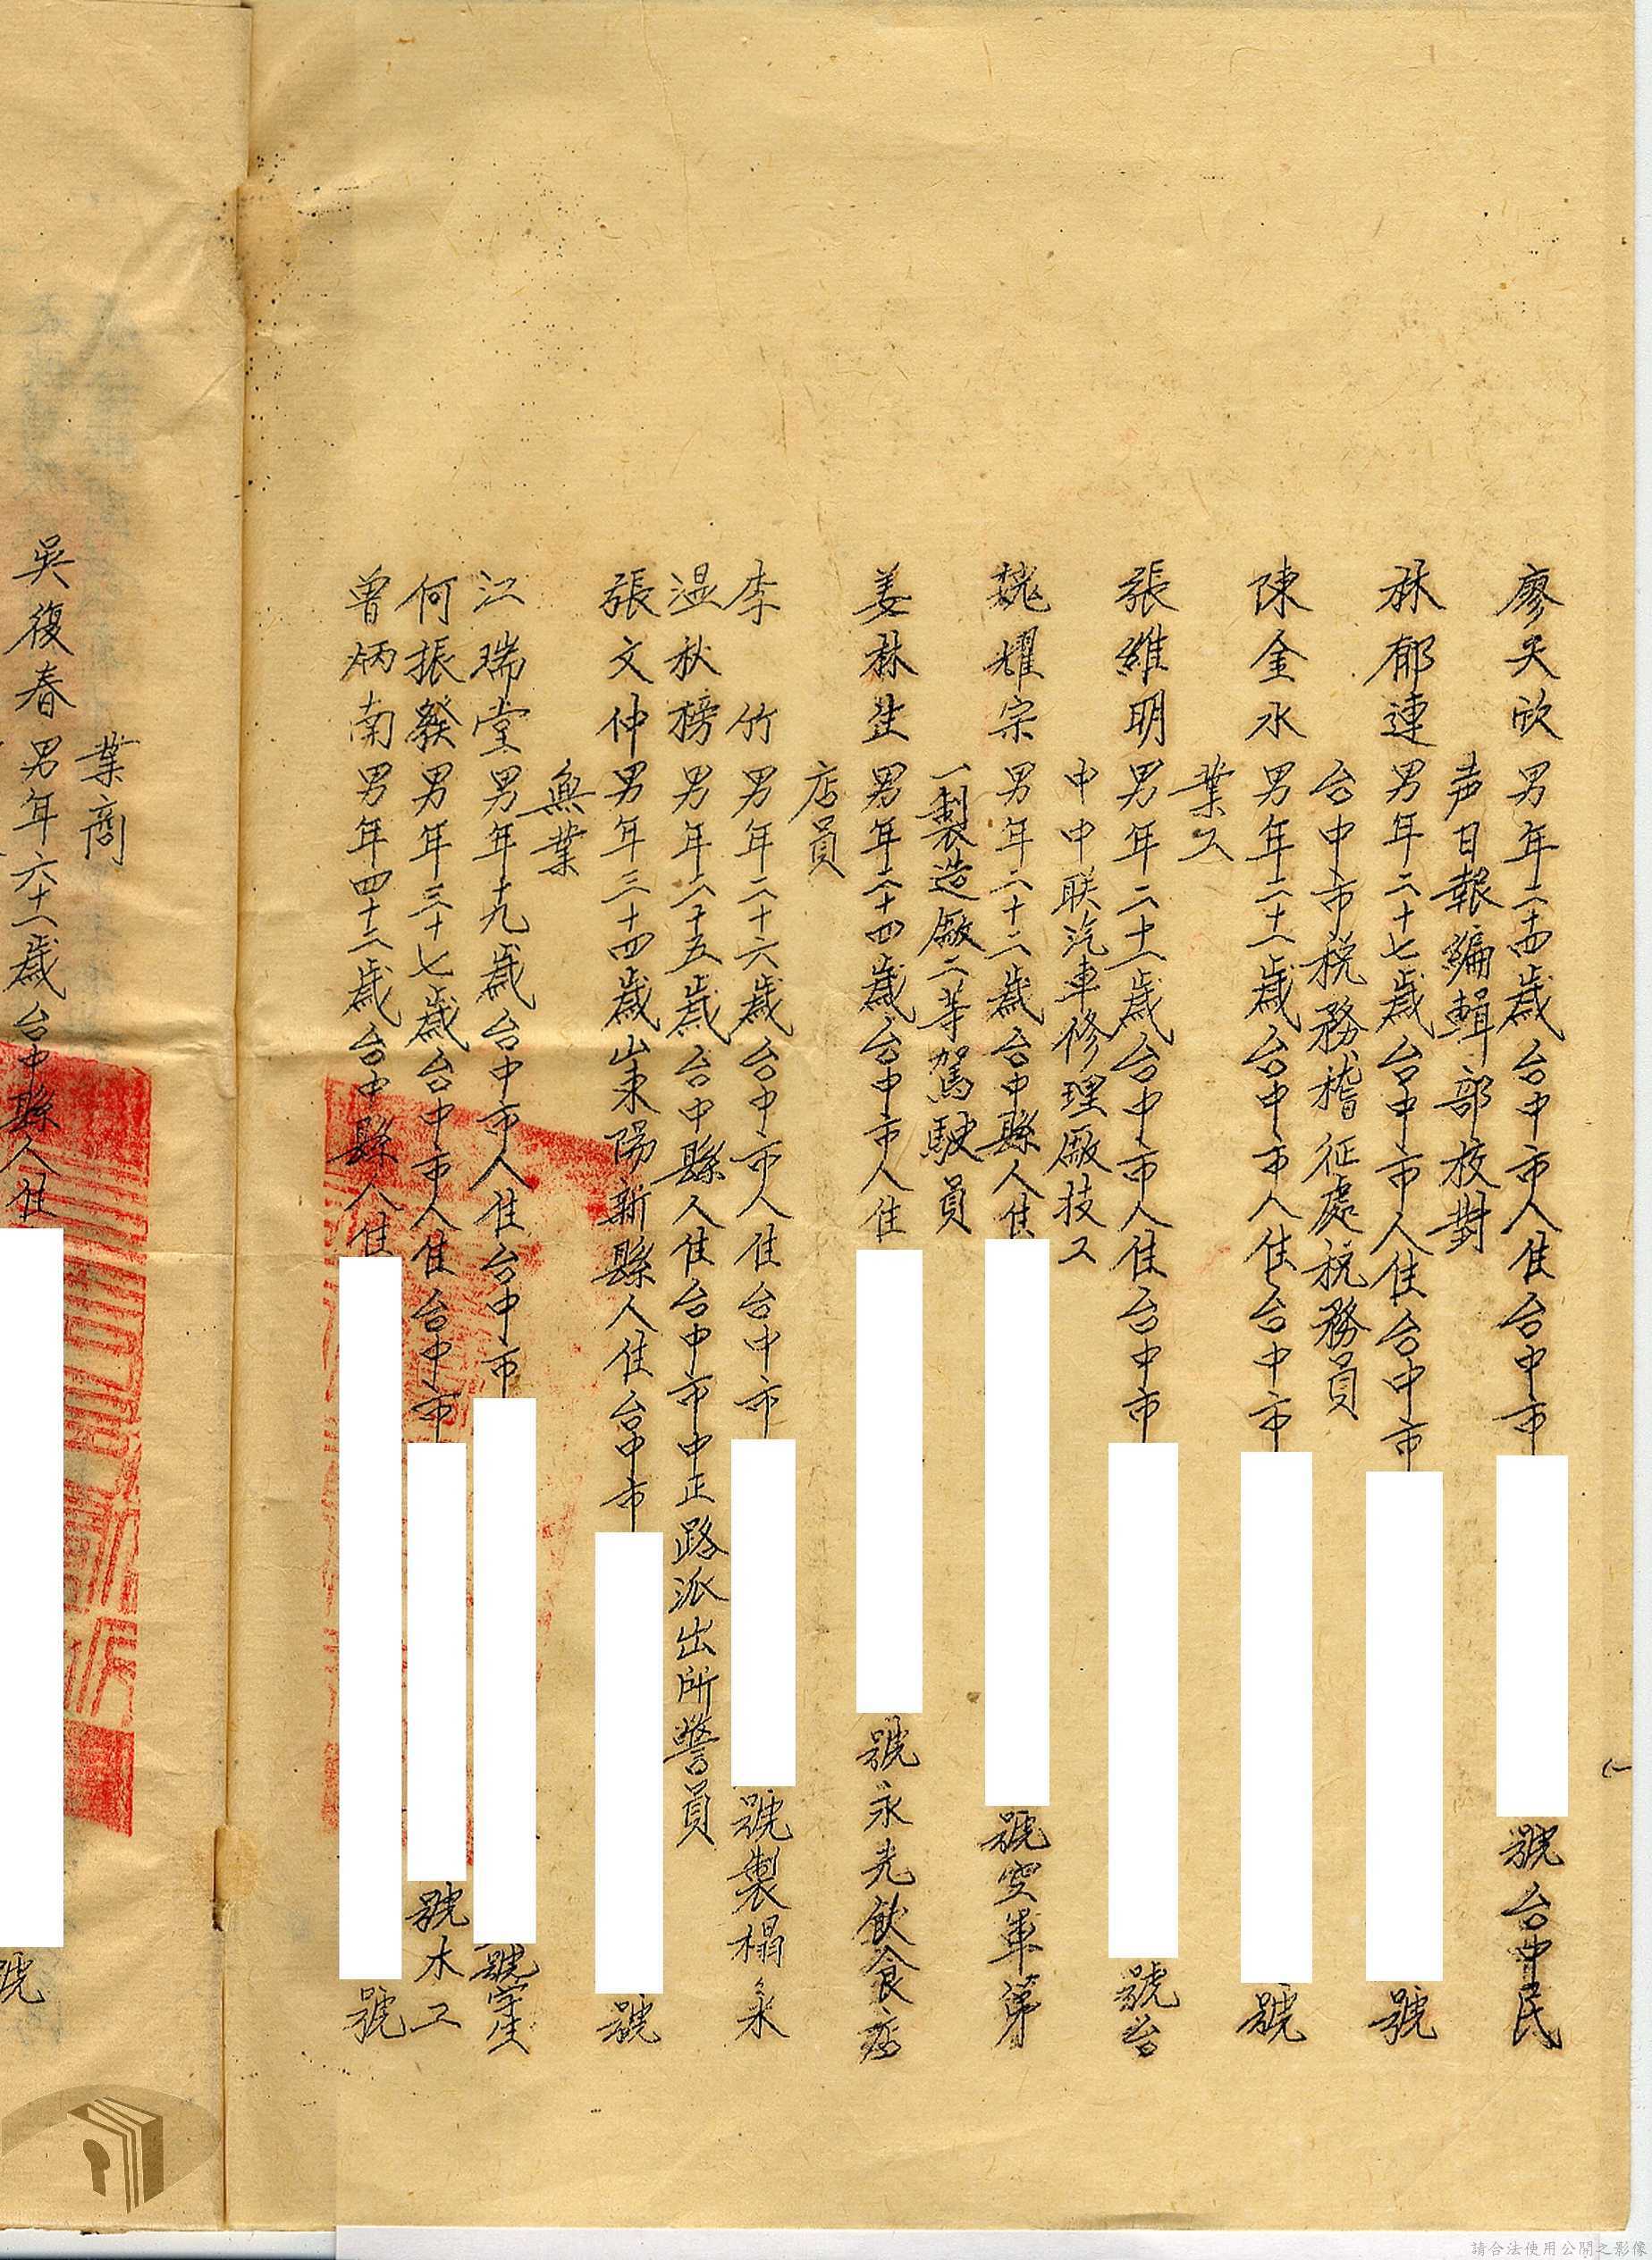 廖天欣男年二十四歲台中市人住台中市號台中民
声日報編輯部校對
林郁連男年二十七歲台中市人住台中市號
台中市稅務稽征處稅務員
陳金水男年二十一歲台中市人住台中市號
業工
張維明男年二十一歲台中市人住台中市號台
中中联汽車修理廠技工
魏耀宗男年二十二歲台中縣人住號空軍第
一製造廠二等駕駛員
姜林生男年二十四歲台中市人住號永光飲食店
店員
李竹男年二十六歲台中市人住台中市號製榻
温秋榜男年二十五歲台中縣人住台中市中正路派出所警員
張文仲男年三十四歲山東陽新縣人住台中市號
無業
江瑞堂男年十九歲台中市人住台中市號學生
何振發男年三十七歲台中市人住台中市號木工
曾炳南男年四十二歲台中縣人住號
業商
吳復春男年六十一歲台中縣人住號
請合法使用公開之影像